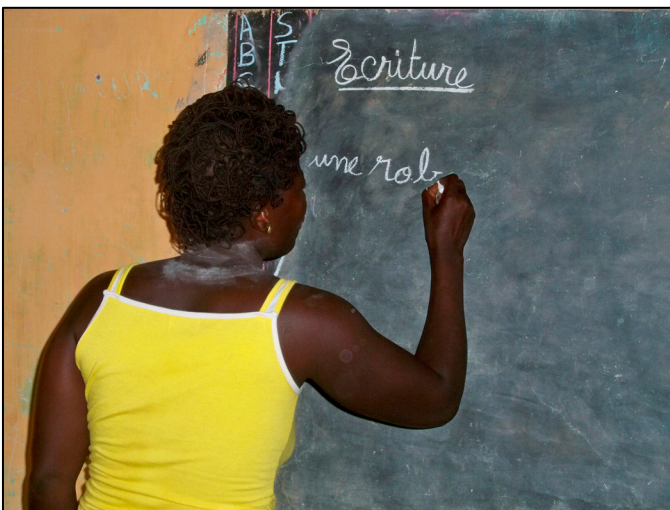 A S
B T
Ecriture
une rob